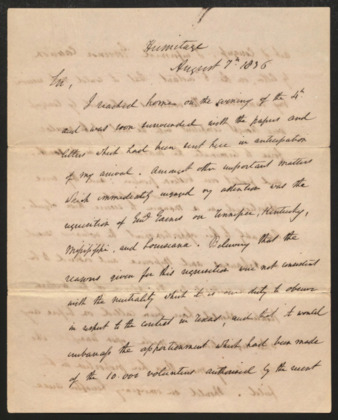 Hermitage
August 7th 1836
Sir,
I reached home on the evening of the 4th
and was soon surrounded with the papers and
letters which had been sent here in anticipation
of my arrival. Amongst other important matters
which immediately engaged my attention was the
requisition of Genl Gaines on Tennessee, Kentucky,
Mississippi, and Louisiana. Believing that the
reasons given for this requisition was not consistent
with the neutrality which it is our duty to observe
in respect to the contest in Texas, and that it would
embarrass the apportionment which had been made
of the 10 000 volunteers authorised by the recent